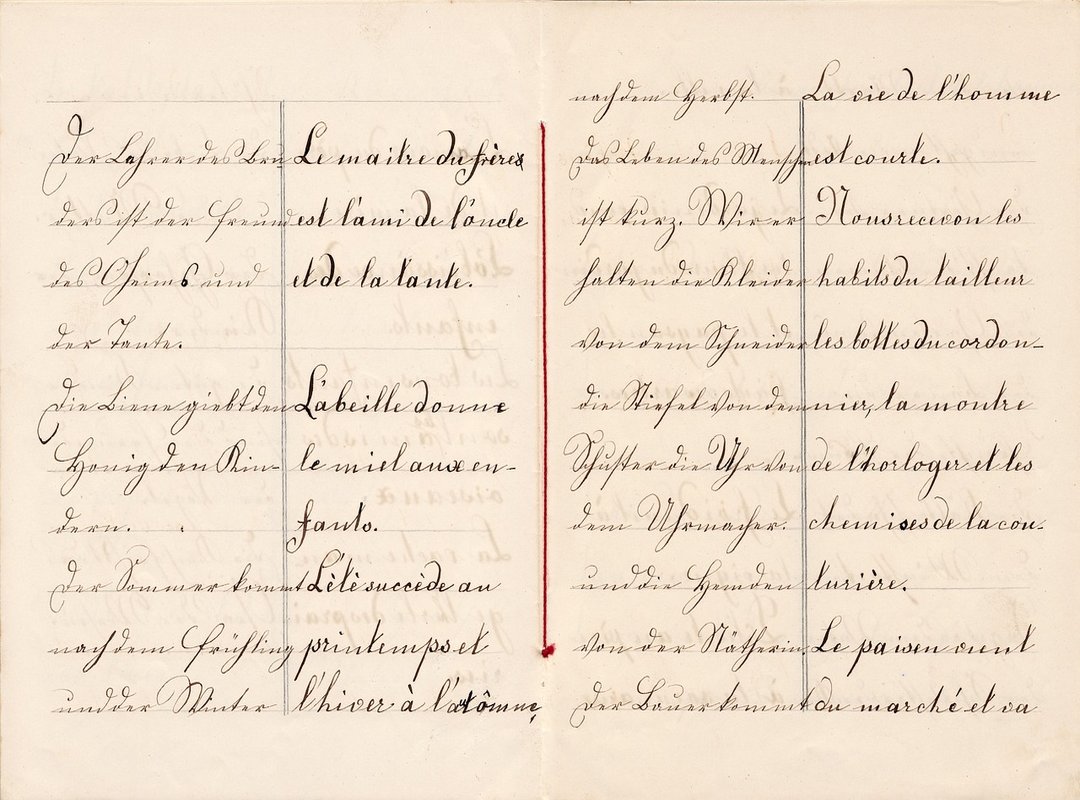 Der Lehrer des Bru-
ders ist der Freund
des Oheims und
der Tante.
Die Biene giebt den
Honig den Kin-
dern.
Der Sommer kommt
nach dem Frühling
und der Winter
Le maitre du frère
est l'ami de l'oncle
et de la tante.
L'abeille donne
le miel aux en-
fants.
L'été succède au
printemps et
l'hiver à l'autômne,
nach dem Herbst.
Das Leben des Menschen
ist kurz. Wir er-
halten die Kleider
von dem Schneider
die Stiefel von dem
Schuster die Uhr von
dem Uhrmacher.
und die Hemden
von der Nätherin
Der Bauer kommt
La vie de l'homme
est courte.
Nous recevon les
habits du tailleur
les bottes du cordon-
nier, la montre
de l'horloger et les
chemises de la cou-
turière.
Le paisen vient
du marché et va